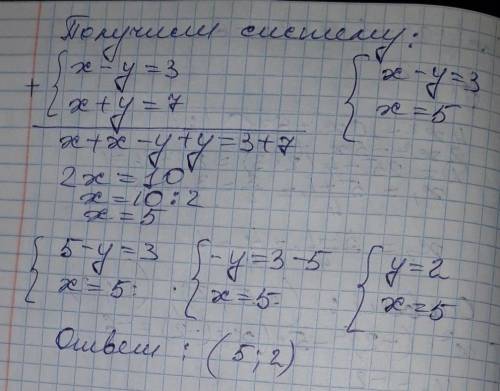 Получим систему:
+ { x - y = 3
x + y = 7
x + x - y + y = 3 + 7
2x = 10
x = 10 : 2
x = 5
{ x - y = 3
x = 5
{ 5 - y = 3
x = 5
{ -y = 3 - 5
x = 5
{ y = 2
x = 5
Ответ: (5; 2)